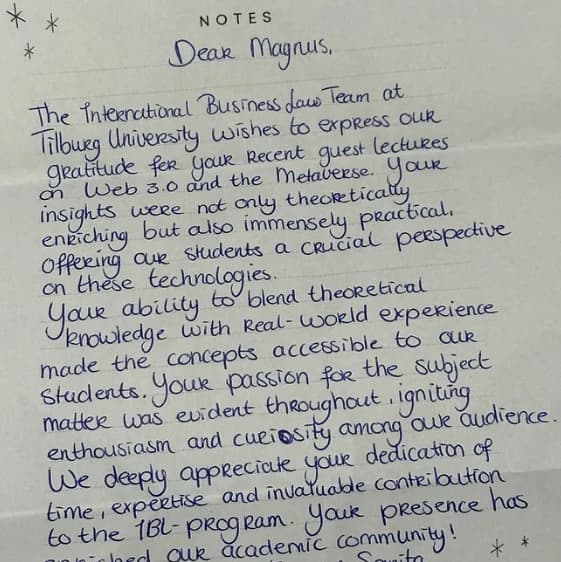 NOTES
Dear Magnus,
The International Business Law Team at
Tilburg University wishes to express our
gratitude for your recent guest lectures
on Web 3.0 and the Metaverse. Your
insights were not only theoretically
enriching but also immensely practical,
offering our students a crucial perspective
on these technologies.
Your ability to blend theoretical
knowledge with real-world experience
made the concepts accessible to our
students. Your passion for the subject
matter was evident throughout, igniting
enthousiasm and curiosity among our audience.
We deeply appreciate your dedication of
time, expertise and invaluable contribution
to the IBL-program. Your presence has
our academic community!